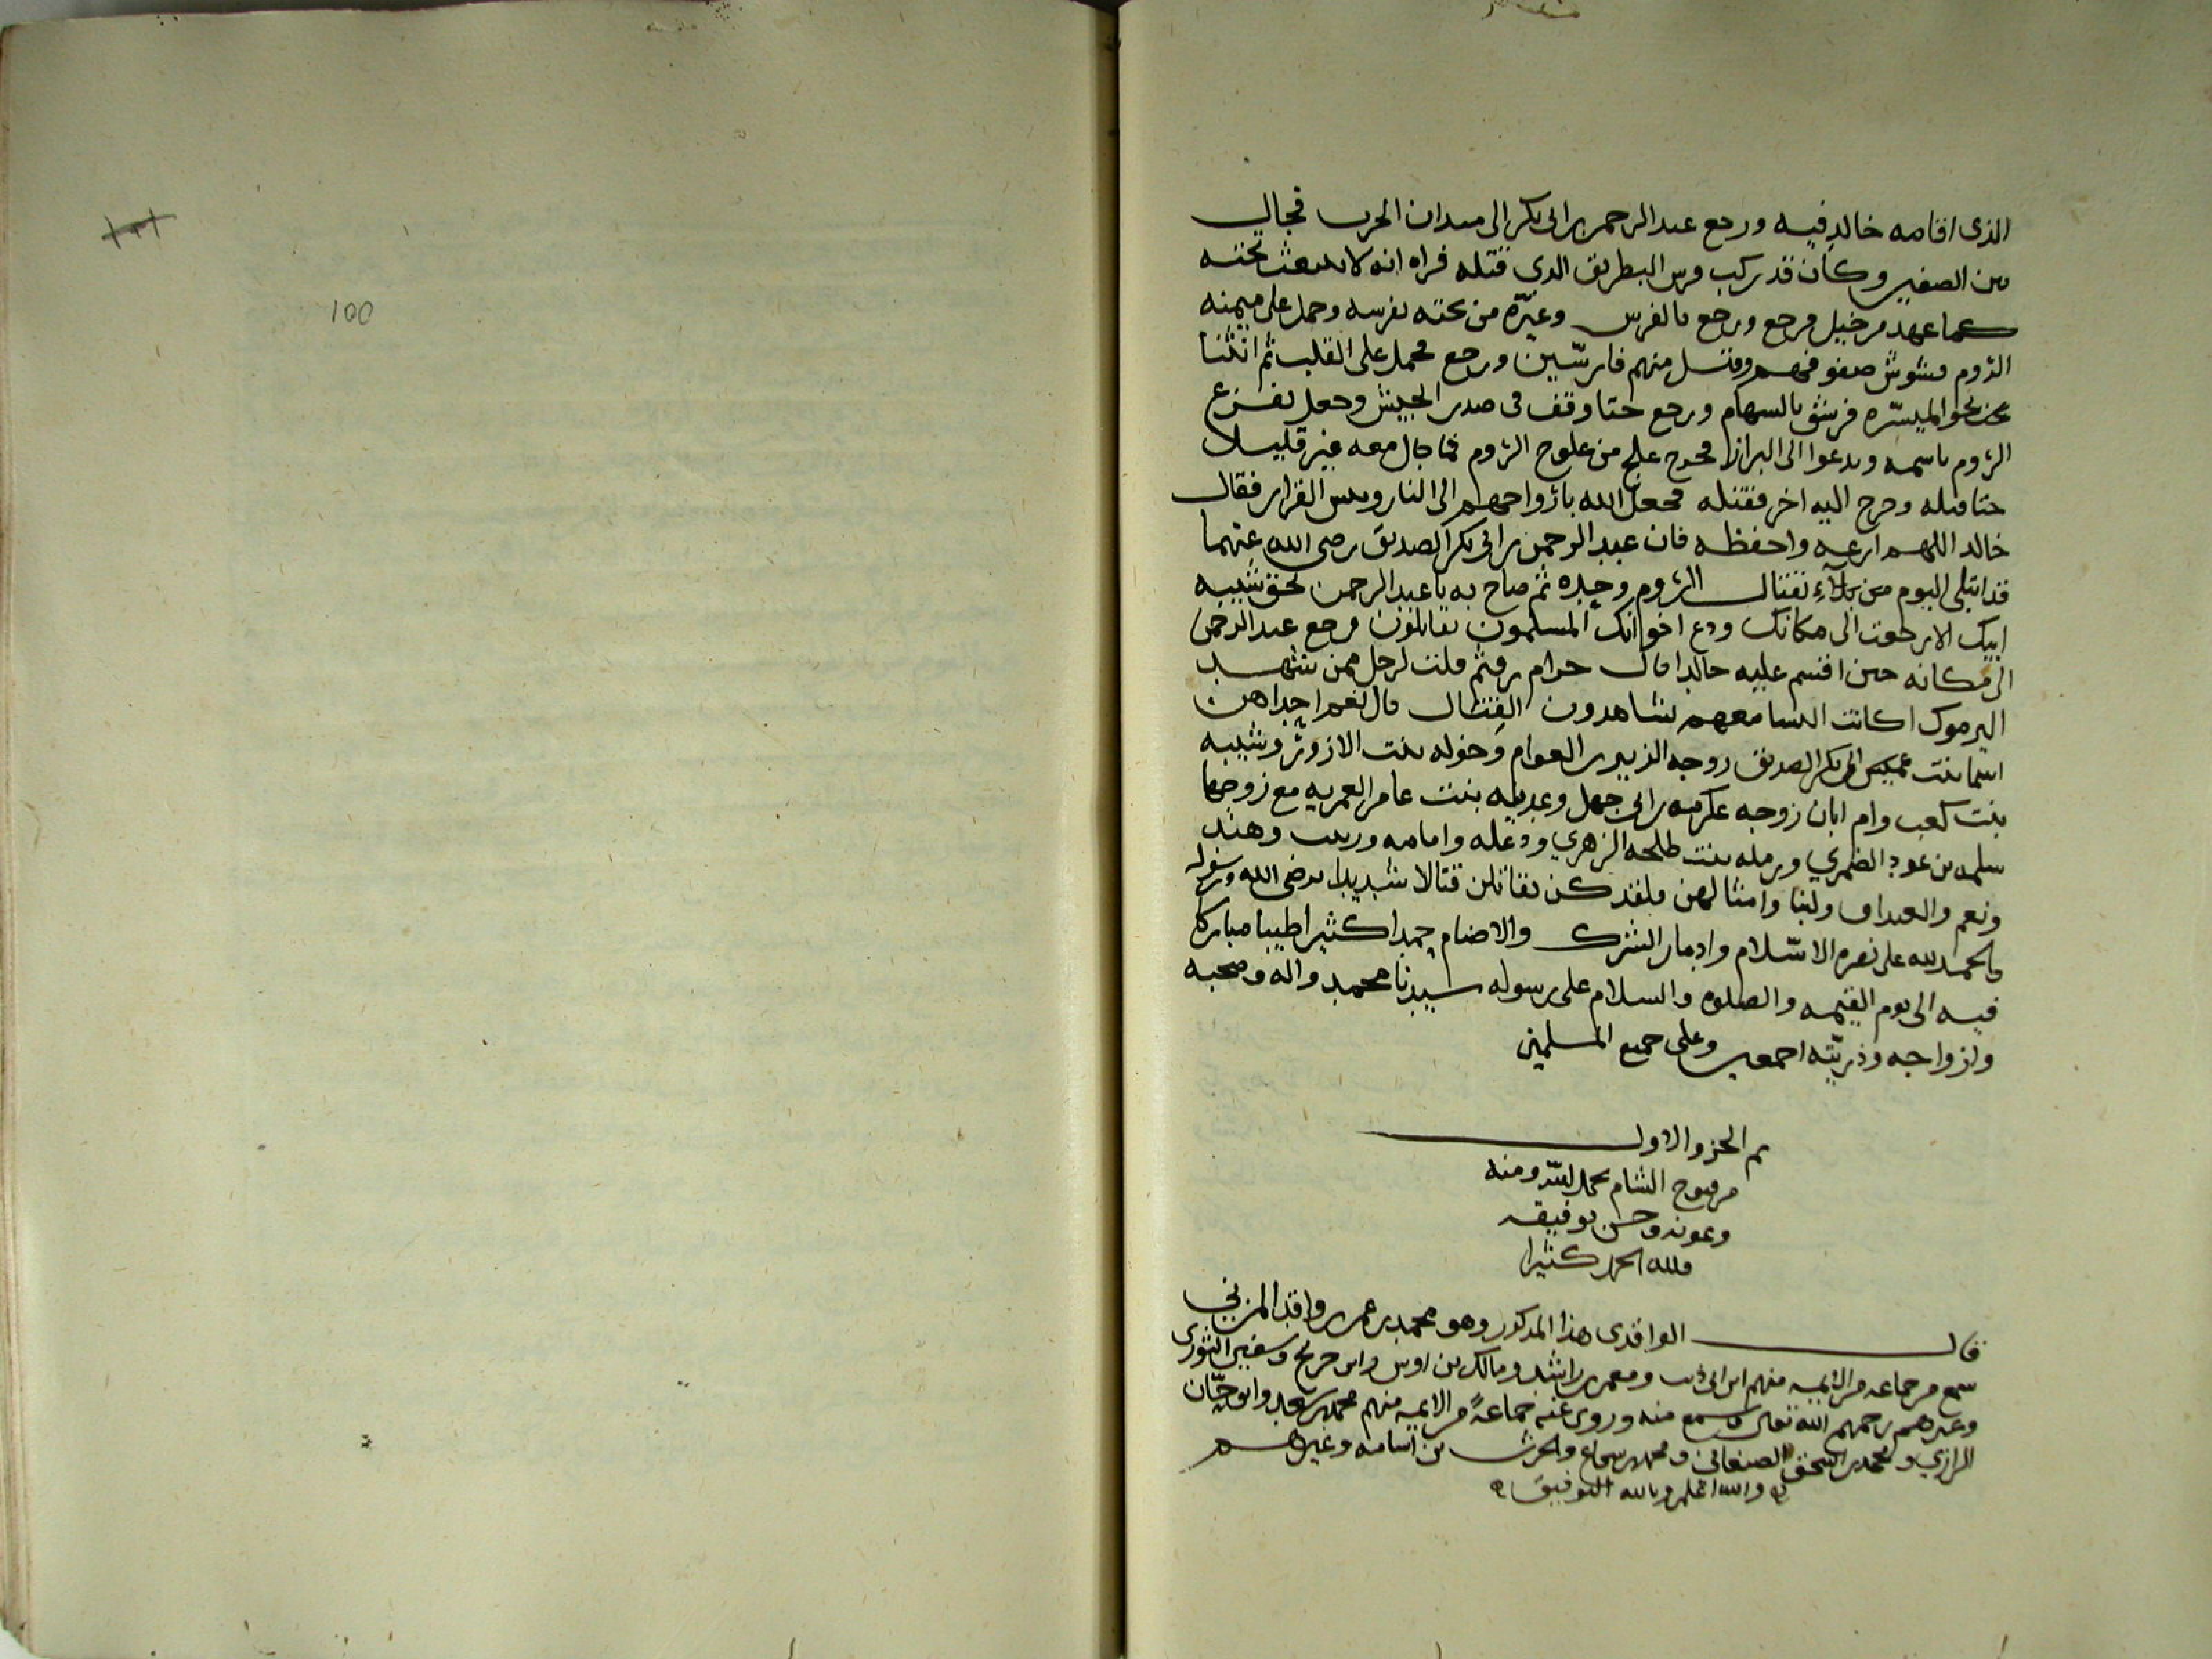 الذى اقامه خالد فيه ورجع عبد الرحمن بن ابى بكر الى ميدان الحرب فجال
بين الصفين وكان قد ركب فرس البطريق الدى قتله فراه انه لا ينبعث تحته
كما عهد من خيل فرجع ورجع بالفرس وغيّره من تحته بفرسه وحمل على ميمنه
الروم فشوش صفوفهم وقتل منهم فارسين ورجع فحمل على القلب ثم انثنا
نحو الميسره فرشق بالسهام ورجع حتا وقف فى صدر الجيش وجعل يفزع
الروم باسمه ويدعوا الى البراز فخرج علج من علوج الروم فما جال معه غير قليلا
حتا قتله وخرج اليه اخر فقتله فجعل الله بارواحهم الى النار وبس القرار فقال
خالد اللهم ارعه واحفظه فان عبد الرحمن بن ابى بكر الصديق رضى الله عنهما
قد ابتلى اليوم من بلآء بقتال الروم وحده ثم صاح به يا عبد الرحمن بحق شيبه
ابيك الا رجعت الى مكانك ودع اخوانك المسلمون يقاتلون فرجع عبد الرحمن
الى مكانه حين اقسم عليه خالد قال حرام قلت لرجل ممن شهد
اليرموك اكانت النسا معهم يشاهدون القتال قال نعم احداهن
اسما بنت ابى بكر الصديق زوجه الزبير بن العوام وخوله بنت الازور وشيبه
بنت كعب وام ابان زوجه عكرمه بن ابى جهل بنت عامر مع زوجها
سلمه بن الضمري ورمله بنت طلحه الزهري وامامه وزينب وهند
ونعم ولبنا وامثالهن فلقد كن يقاتلن قتالا شديدا يرضى الله ورسوله
والحمد لله على نصره الاسلام وادبار الشرك والاصنام حمدا كثيرا طيبا مباركا
فيه الى يوم القيمه والصلوه والسلام على رسوله سيدنا محمد واله وصحبه
وازواجه وذريّته اجمعين وعلى جميع المسلمين
تم الجزو الاول
من فتوح الشام بحمد الله ومنه
وعونه وحسن توفيقه
ولله الحمد كثيرا
قال الواقدى هذا المذكور وهو محمد بن عمر بن واقد المزني
سمع من جماعه من الايمه منهم ابن ابى ذيب ومعمر بن راشد ومالك بن اوس وابن جريج وسفين الثورى
وغيرهم رحمهم الله تعالى وسمع منه وروى عنه جماعةً من الايمه منهم محمد بن سعد وابو حسّان
الرازي ومحمد بن اسحق الصنعانى ومحمد بن شجاع والحرث بن اسامه وغيرهم
والله اعلم وبالله التوفيق
100